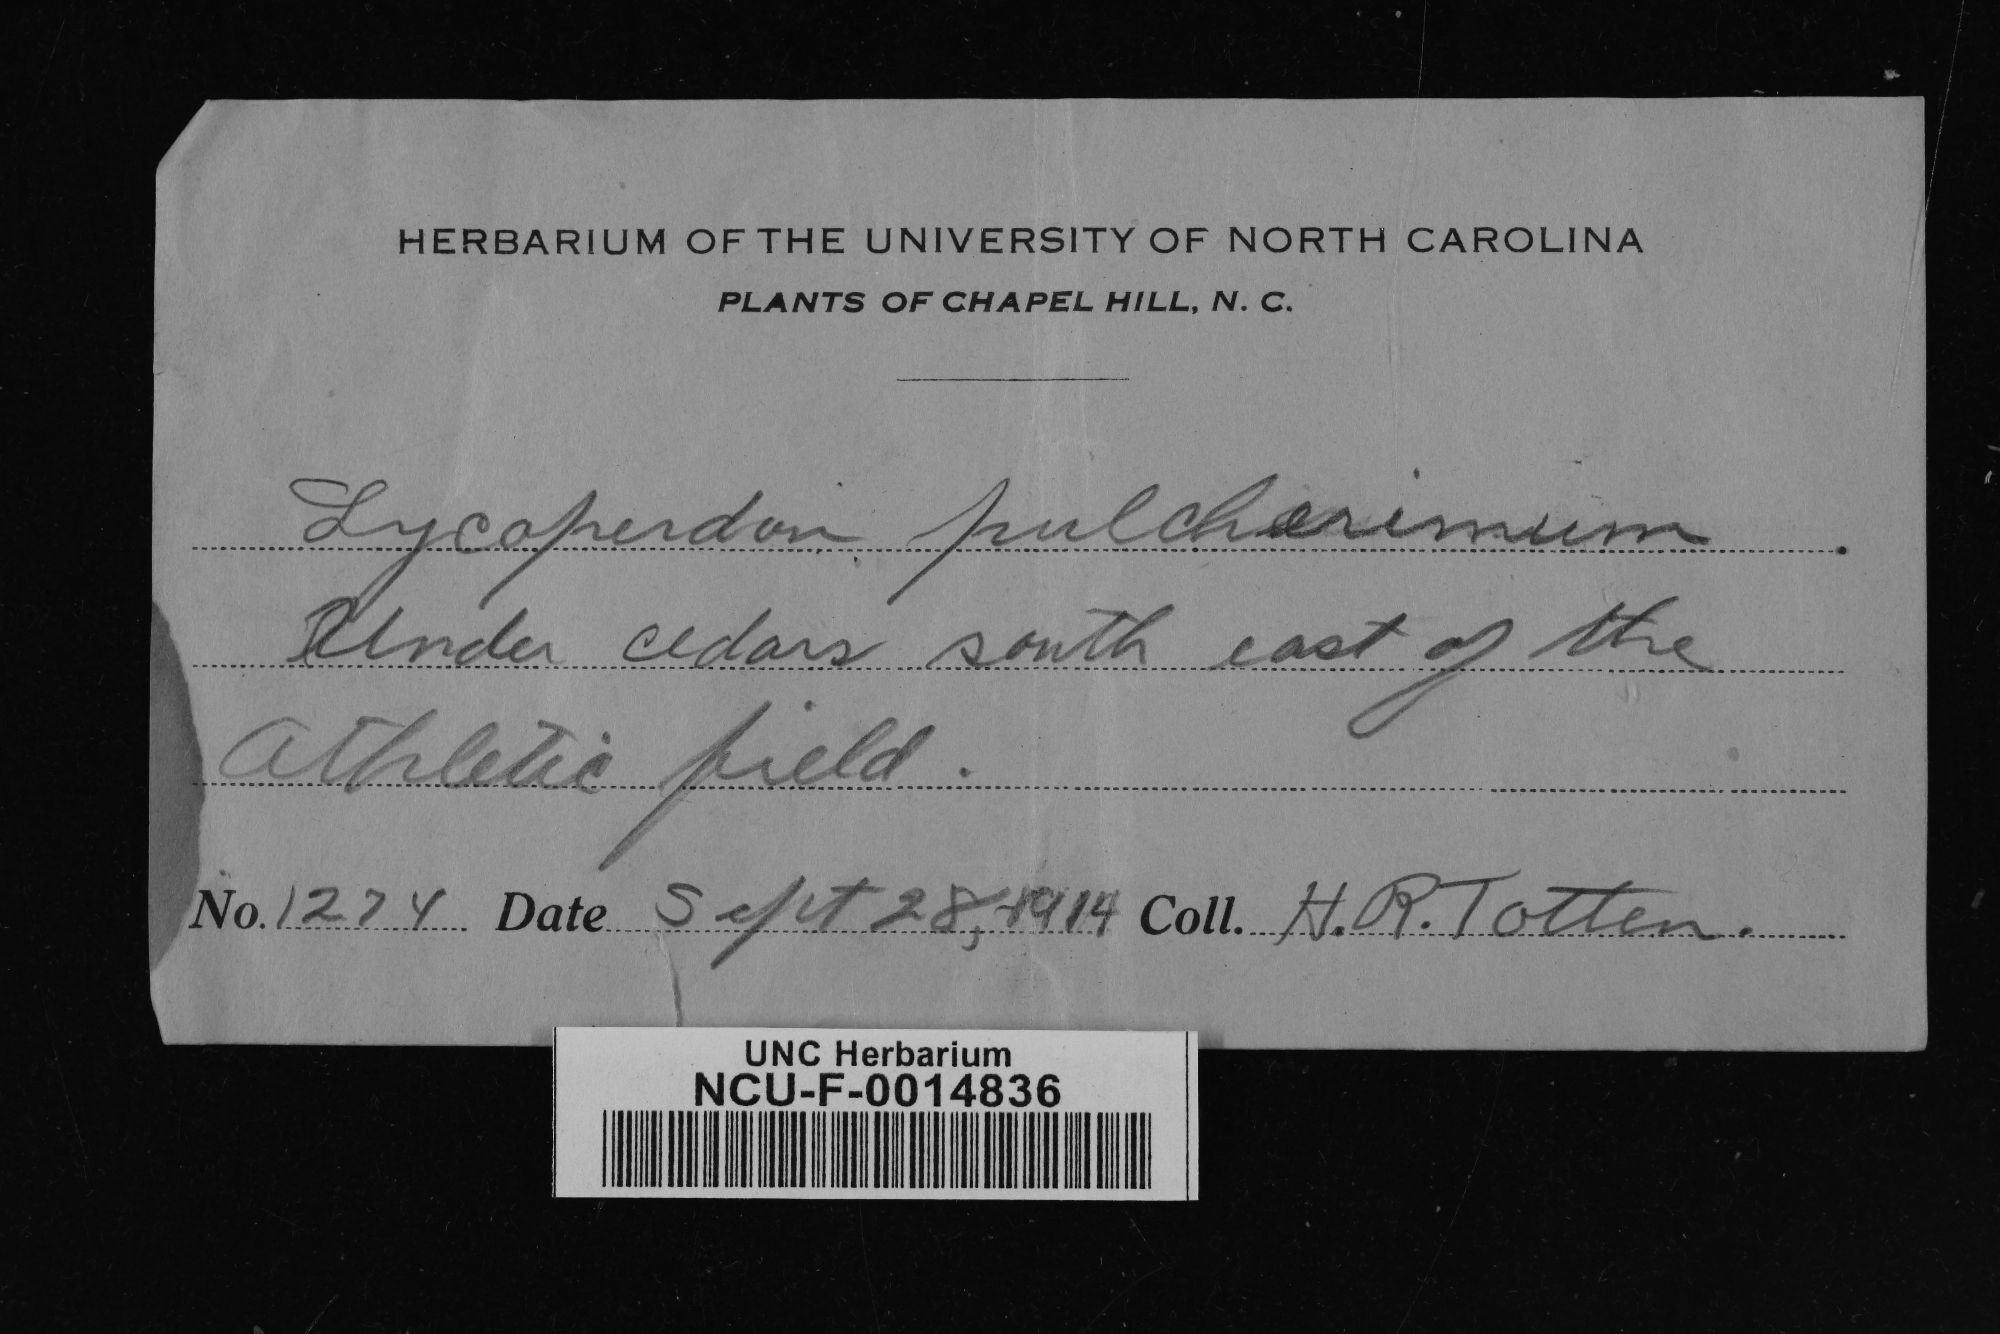 HERBARIUM OF THE UNIVERSITY OF NORTH CAROLINA
PLANTS OF CHAPEL HILL, N. C.
Lycoperdon pulcherimum.
Under cedars south east of the
Athletic field.
No. 1274 Date Sept 28, 1914 Coll. H. R. Totten.
UNC Herbarium
NCU-F-0014836